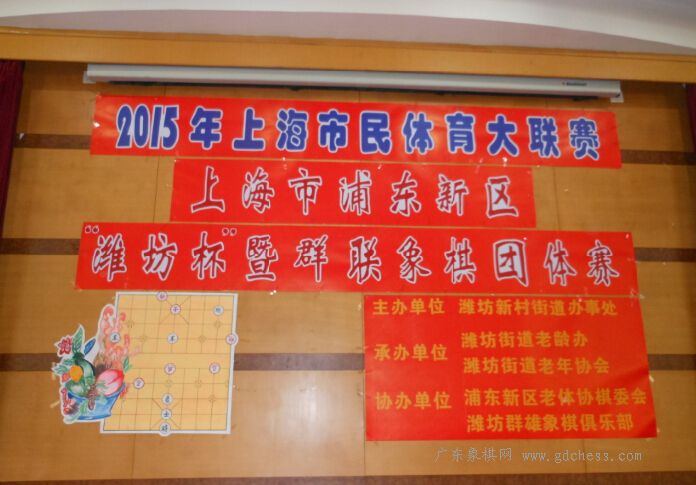 2015年上海市民体育大联赛
上海市浦东新区
"潍坊杯"暨群联象棋团体赛
主办单位 潍坊新村街道办事处
承办单位 潍坊街道老龄办
潍坊街道老年协会
协办单位 浦东新区老体协棋委会
潍坊群雄象棋俱乐部
广东象棋网 www.gdchess.com